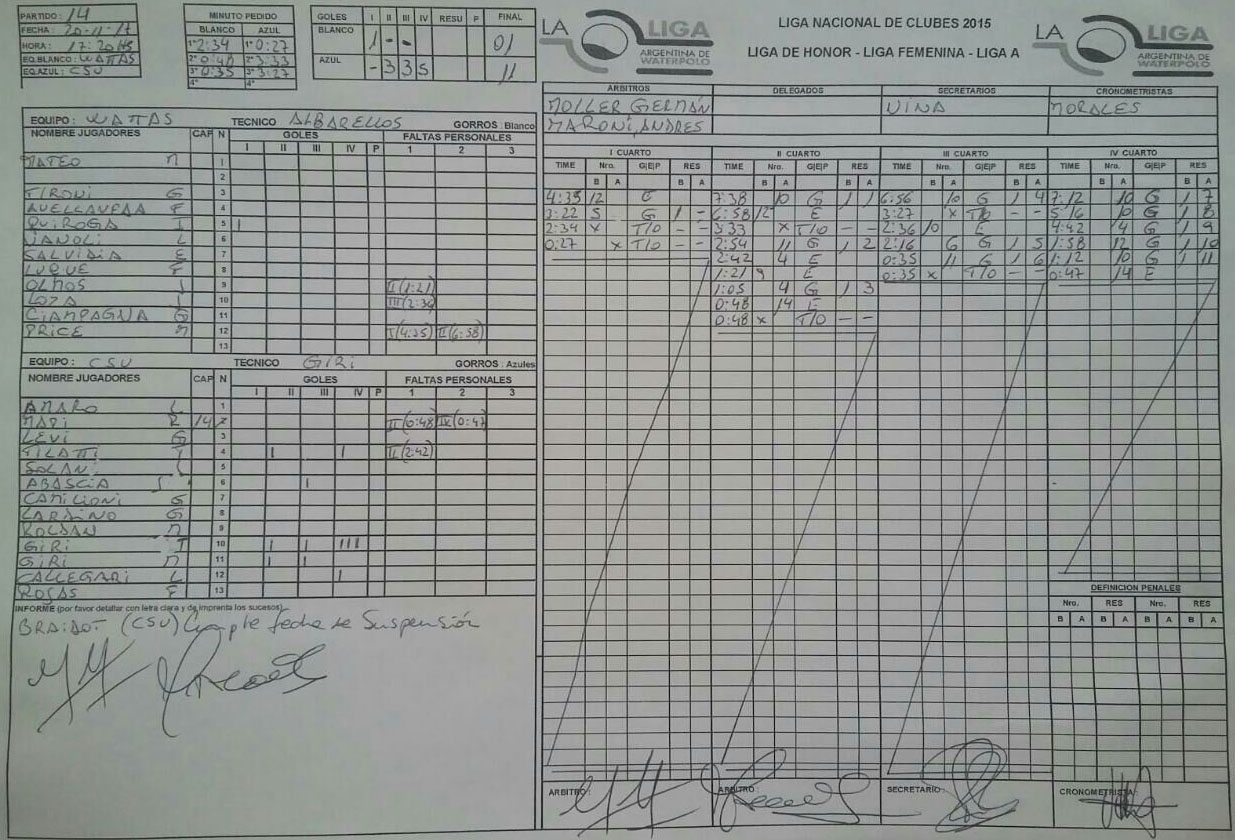 PARTIDO : 14
FECHA : 20-11-17
HORA : 17:20 HS
EQ.BLANCO : WATTAS
EQ.AZUL : CSU
MINUTO PEDIDO
BLANCO AZUL
1° 2:34 1° 0:27
2° 0:48 2° 3:33
3° 0:35 3° 3:27
4° 4°
GOLES I II III IV RESU P FINAL
BLANCO 1 - - 01
AZUL - 3 3 5 11
LA LIGA ARGENTINA DE WATERPOLO
LIGA NACIONAL DE CLUBES 2015
LIGA DE HONOR - LIGA FEMENINA - LIGA A
LA LIGA ARGENTINA DE WATERPOLO
ARBITROS DELEGADOS SECRETARIOS CRONOMETRISTAS
MOLLER GERMÁN VIÑA MORALES
MARONI, ANDRES
EQUIPO : WATTAS TECNICO ALBARELLOS GORROS : Blanco
NOMBRE JUGADORES CAP N GOLES FALTAS PERSONALES
I II III IV P 1 2 3
MATEO M 1
2
TIRONI G 3
AVELLANEDA F 4
QUIROGA I 5 I
VANOLI L 6
SALVIDIA E 7
LUQUE F 8
OLMOS J 9 II (1:21)
LOZA J 10 III (2:36)
CIAMPAGNA G 11
PRICE M 12 I (4:35) II (6:58)
13
EQUIPO : CSU TECNICO GIRI GORROS : Azules
NOMBRE JUGADORES CAP N GOLES FALTAS PERSONALES
I II III IV P 1 2 3
AMARO L 1
MAPI R 14 2 II (0:48) IV (0:47)
LEVI G 3
TILATTI T 4 I I II (2:42)
SOLANI L 5
ABASCIA S 6 I
CAMILIONI G 7
LARDINO G 8
ROLDAN M 9
GIRI J 10 I I III
GIRI M 11 I I
CALLEGARI L 12 I
ROSAS F 13
INFORME (por favor detallar con letra clara y de imprenta los sucesos)
BRAIDOT (CSU) Cumple fecha de Suspensión
I CUARTO
TIME Nro. G|E|P RES
B A B A
4:35 12 E
3:22 5 G 1 -
2:34 X T/O - -
0:27 X T/O - -
II CUARTO
TIME Nro. G|E|P RES
B A B A
7:38 10 G 1 1
6:58 12 E
3:33 X T/O - -
2:54 11 G 1 2
2:42 4 E
1:21 9 E
1:05 4 G 1 3
0:48 14 E
0:48 X T/O - -
III CUARTO
TIME Nro. G|E|P RES
B A B A
6:56 10 G 1 4
3:27 X T/O - -
2:36 10 E
2:16 6 G 1 5
0:35 11 G 1 6
0:35 X T/O - -
IV CUARTO
TIME Nro. G|E|P RES
B A B A
7:12 10 G 1 7
5:16 10 G 1 8
4:42 4 G 1 9
1:58 12 G 1 10
1:12 10 G 1 11
0:47 14 E
DEFINICION PENALES
Nro. RES Nro. RES
B A B A B A B A
ARBITRO : ARBITRO : SECRETARIO : CRONOMETRISTA :